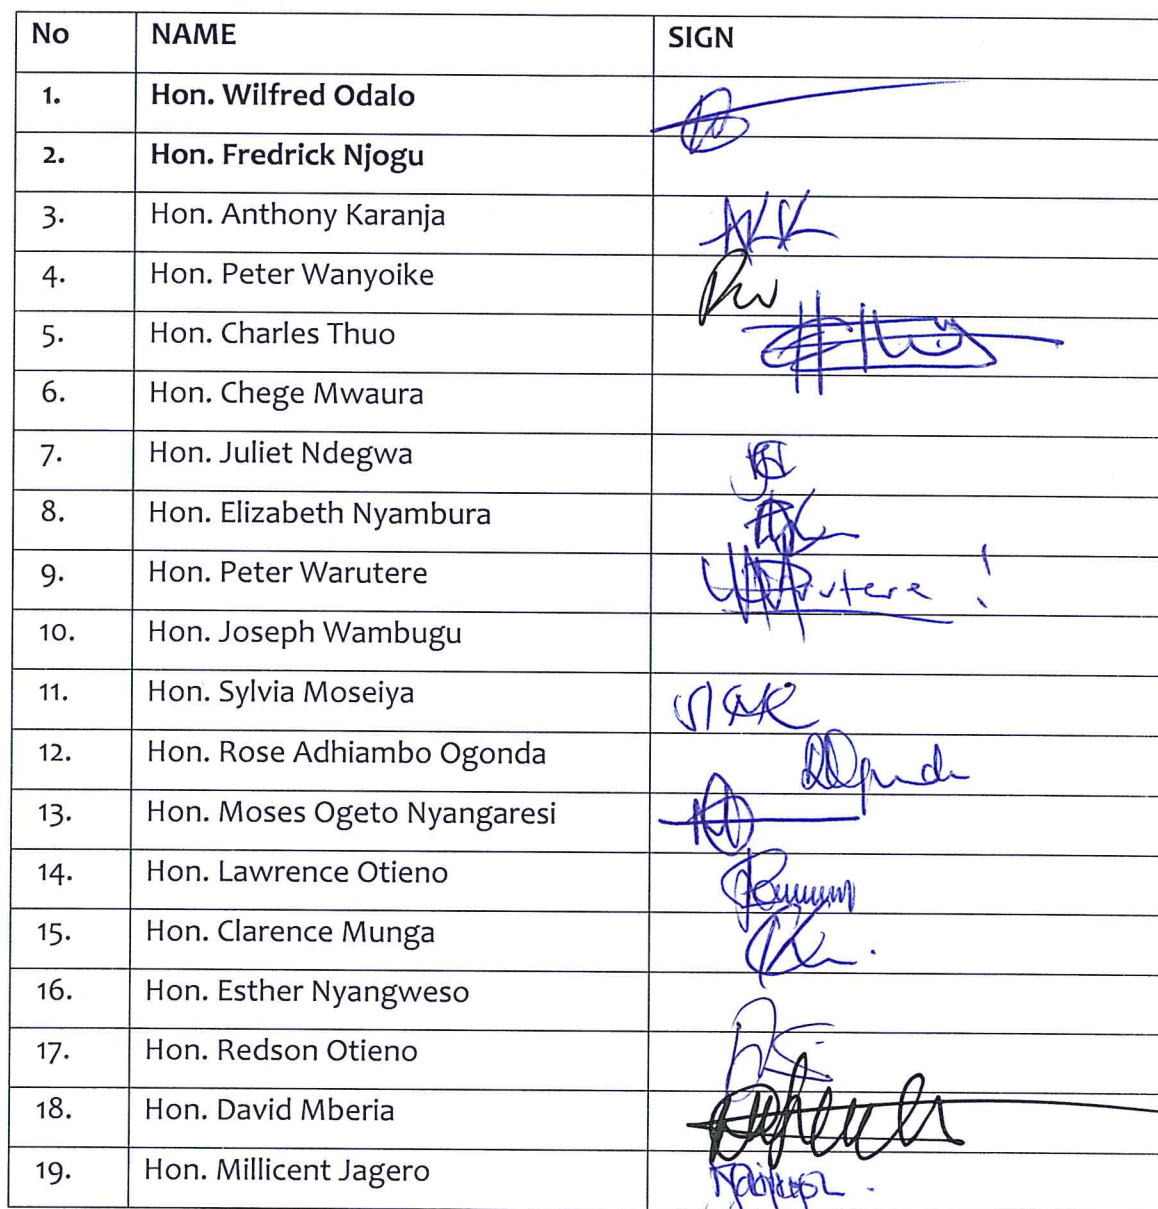 No NAME SIGN
1. Hon. Wilfred Odalo
2. Hon. Fredrick Njogu
3. Hon. Anthony Karanja AKK
4. Hon. Peter Wanyoike
5. Hon. Charles Thuo
6. Hon. Chege Mwaura
7. Hon. Juliet Ndegwa
8. Hon. Elizabeth Nyambura
9. Hon. Peter Warutere
10. Hon. Joseph Wambugu
11. Hon. Sylvia Moseiya
12. Hon. Rose Adhiambo Ogonda
13. Hon. Moses Ogeto Nyangaresi
14. Hon. Lawrence Otieno
15. Hon. Clarence Munga
16. Hon. Esther Nyangweso
17. Hon. Redson Otieno
18. Hon. David Mberia
19. Hon. Millicent Jagero